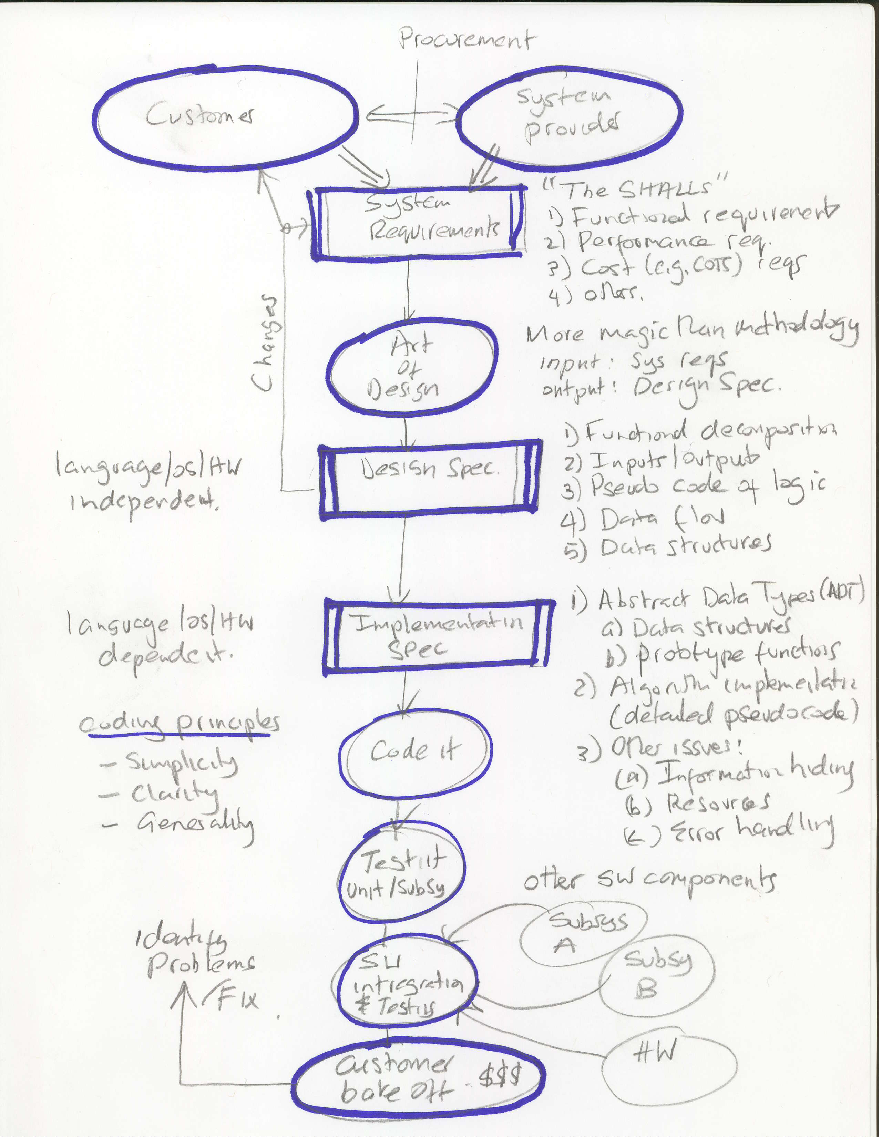 Procurement
Customer
System
provider
System
Requirements
"The SHALLs"
1) Functional requirement
2) Performance req.
3) Cost (e.g. COTS) reqs
4) others.
Changes
Art
of
Design
More magic than methodology
input: Sys reqs
output: Design Spec.
language/OS/HW
independent.
Design Spec.
1) Functional decomposition
2) Inputs/outputs
3) Pseudo code of logic
4) Data flow
5) Data structures
language/OS/HW
dependent.
Implementation
Spec
1) Abstract Data Types (ADT)
a) Data structures
b) prototype functions
2) Algorithm implementation
(detailed pseudocode)
3) Other issues:
(a) Information hiding
(b) Resources
(c) Error handling
coding principles
- Simplicity
- Clarity
- Generality
Code it
Test it
Unit/SubSy
other SW components
Subsys
A
Subsy
B
HW
SW
integration
& Testing
Identify
Problems
/Fix
Customer
bake off - $$$